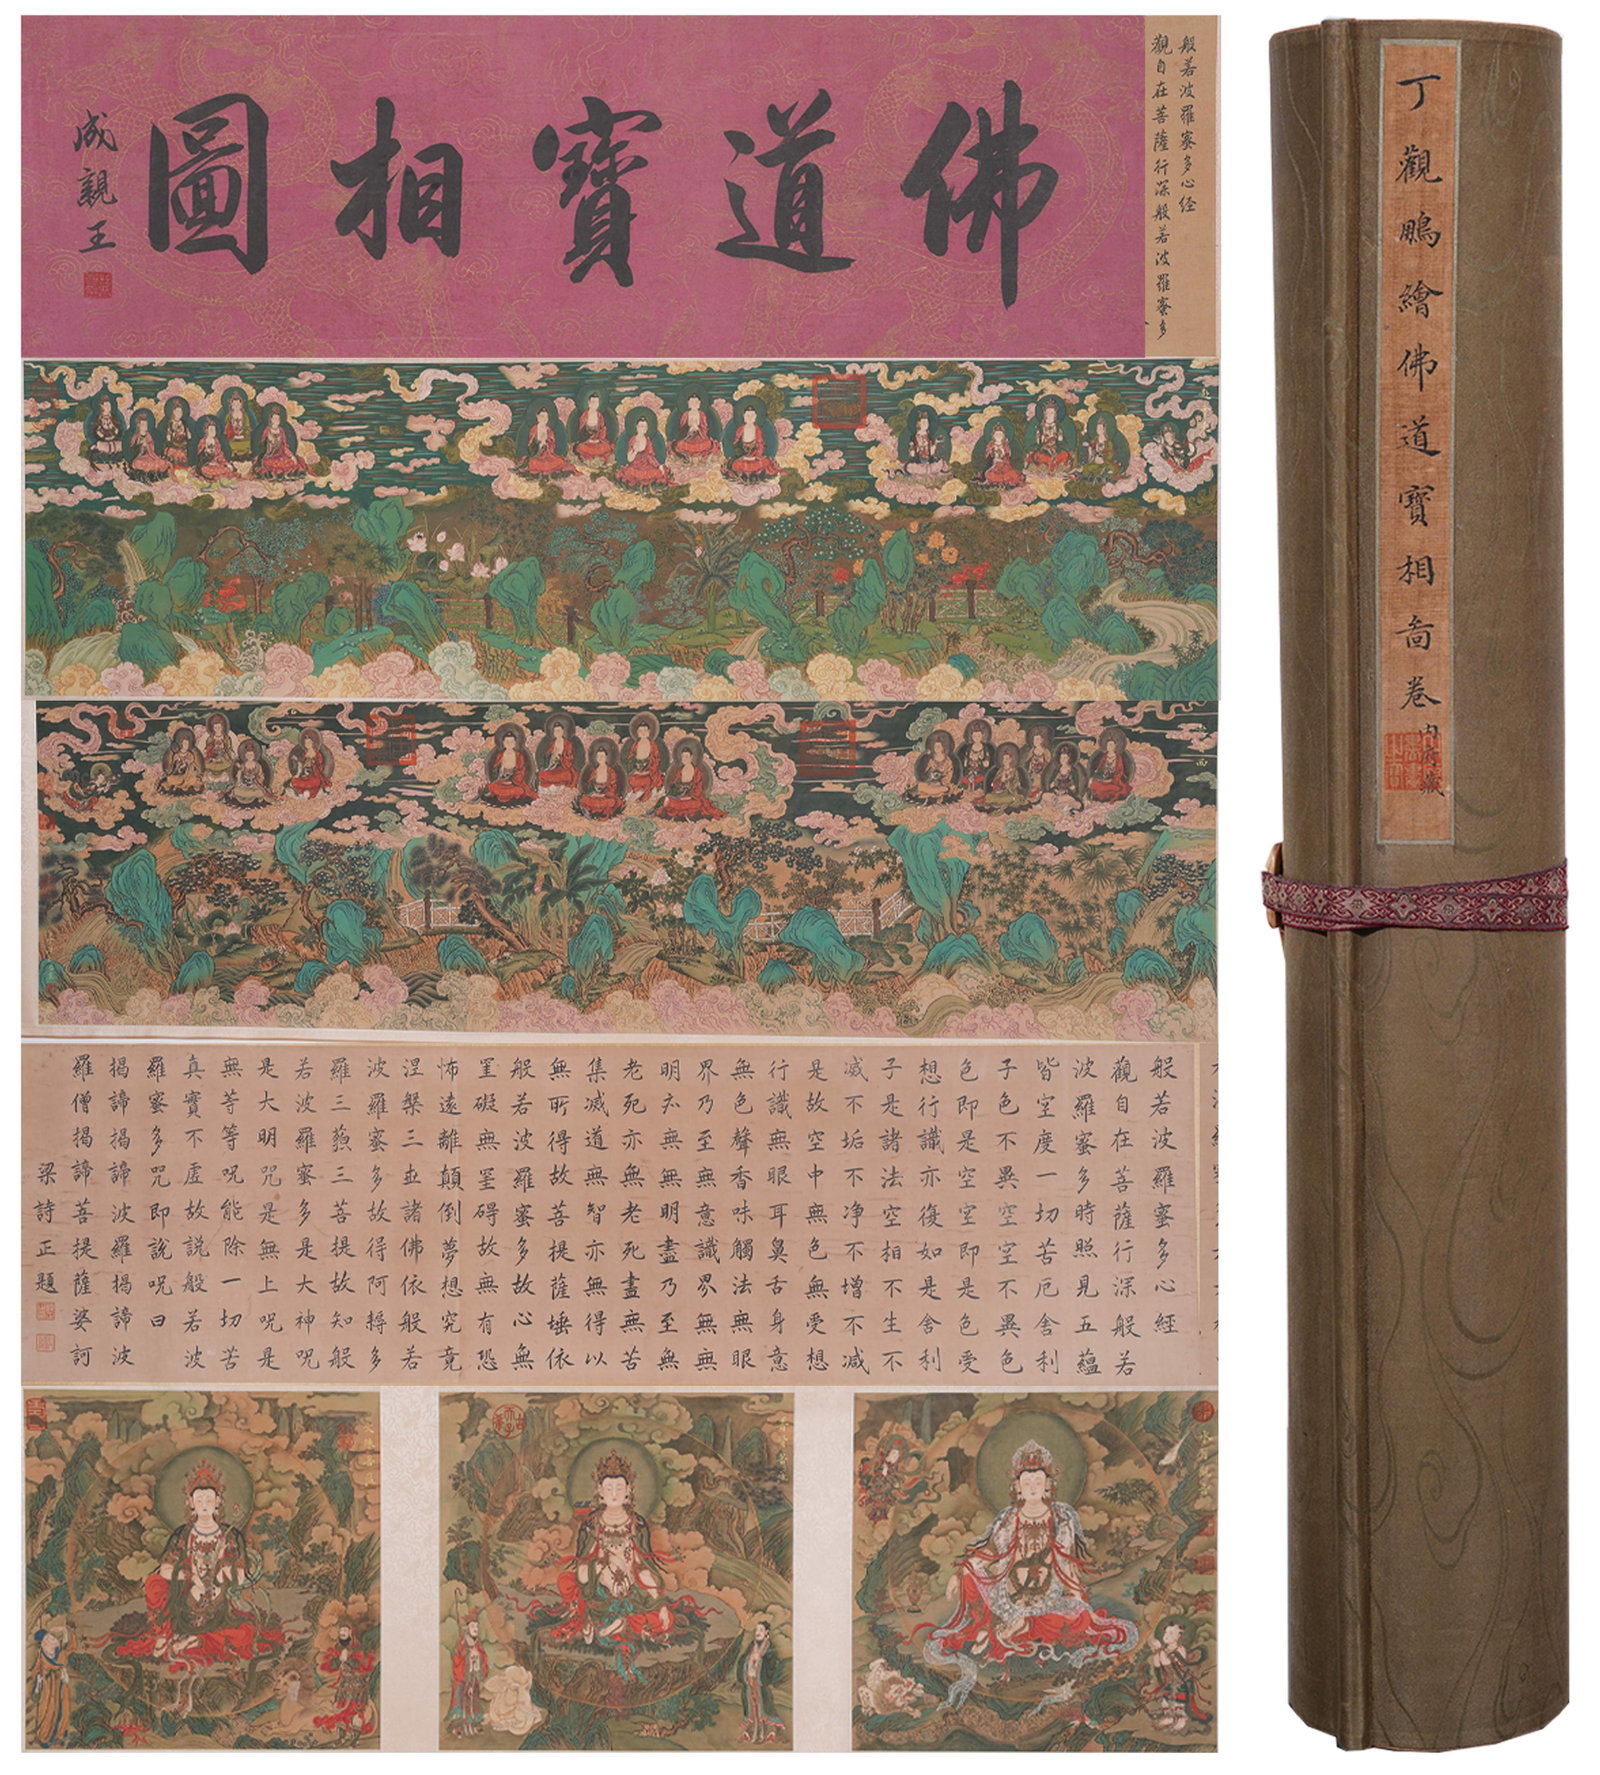 般若波羅蜜多心经
觀自在菩薩行深般若波羅蜜多
佛道寶相圖
成親王
般若波羅蜜多心經
觀自在菩薩行深般若
波羅蜜多時照見五蘊
皆空度一切苦厄舍利
子色不異空空不異色
色即是空空即是色受
想行識亦復如是舍利
子是諸法空相不生不
减不垢不净不增不减
是故空中無色無受想
行識無眼耳鼻舌身意
無色聲香味觸法無眼
界乃至無意識界無無
明亦無無明盡乃至無
老死亦無老死盡無苦
集减道無智亦無得以
無所得故菩提薩埵依
般若波羅蜜多故心無
罣礙無罣碍故無有恐
怖遠離顛倒夢想究竟
涅槃三世諸佛依般若
波羅蜜多故得阿耨多
羅三藐三菩提故知般
若波羅蜜多是大神咒
是大明咒是無上咒是
無等等咒能除一切苦
真實不虛故説般若波
羅蜜多咒即說咒曰
揭諦揭諦波羅揭諦波
羅僧揭諦菩提薩婆訶
梁詩正題
丁觀鵬繪佛道寶相啚卷
内府藏